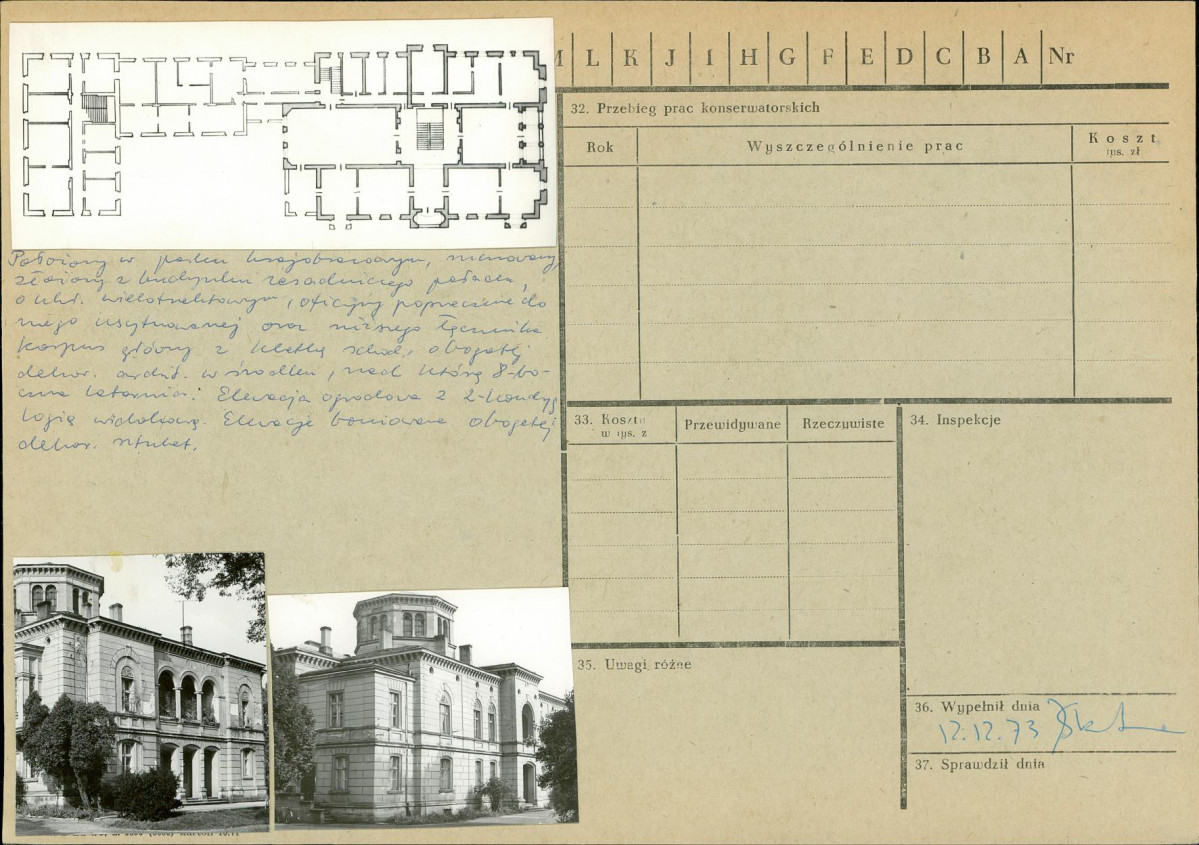 L K J I H G F E D C B A Nr
32. Przebieg prac konserwatorskich
Rok
Wyszczególnienie prac
Koszt
tys. zł
Położony w parku krajobrazowym, murowany,
złożony z budynku zasadniczego pałacu,
o ukł. wielotraktowym, oficyny poprzecznie do
niego usytuowanej oraz niższego łącznika
Korpus główny z klatką schod. o bogatej
dekor. archit. w środku, nad którą 8-bo-
czna latarnia. Elewacja ogrodowa z 2-kondyg
logią widokową. Elewacje boniowane o bogatej
dekor. sztukat.
33. Koszty
w tys. z
Przewidywane
Rzeczywiste
34. Inspekcje
35. Uwagi różne
36. Wypełnił dnia
12.12.73
37. Sprawdził dnia